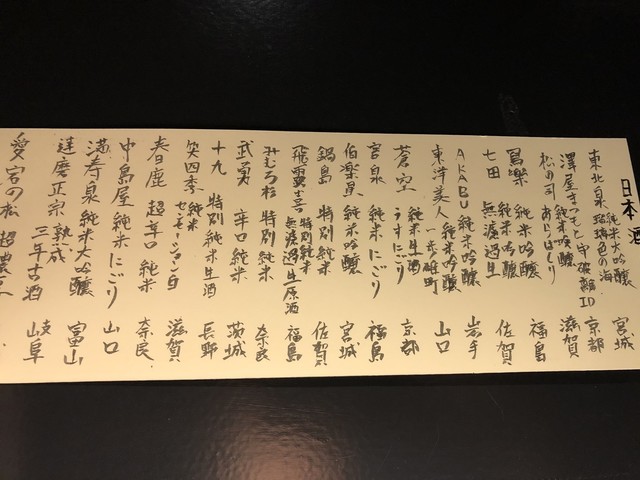 日本酒
東北泉 純米大吟醸 瑠璃色の海 宮城
澤屋まつもと 守破離ID 京都
松の司 純米吟醸 あらばしり 滋賀
寫樂 純米吟醸 福島
七田 純米吟醸 無濾過生 佐賀
AKABU 純米吟醸 岩手
東洋美人 純米吟醸 一歩 雄町 山口
蒼空 純米生酒 うすにごり 京都
宮泉 純米 にごり 福島
伯楽星 純米吟醸 宮城
鍋島 特別純米 佐賀
飛露喜 特別純米 無濾過生原酒 福島
みむろ杉 特別純米 奈良
武勇 辛口純米 茨城
十九 特別純米生酒 長野
笑四季 純米 センセーション白 滋賀
春日鹿 超辛口 純米 奈良
中島屋 純米にごり 山口
満寿泉 純米大吟醸 富山
達磨正宗 熟成 三年古酒 岐阜
愛宮の松 超濃